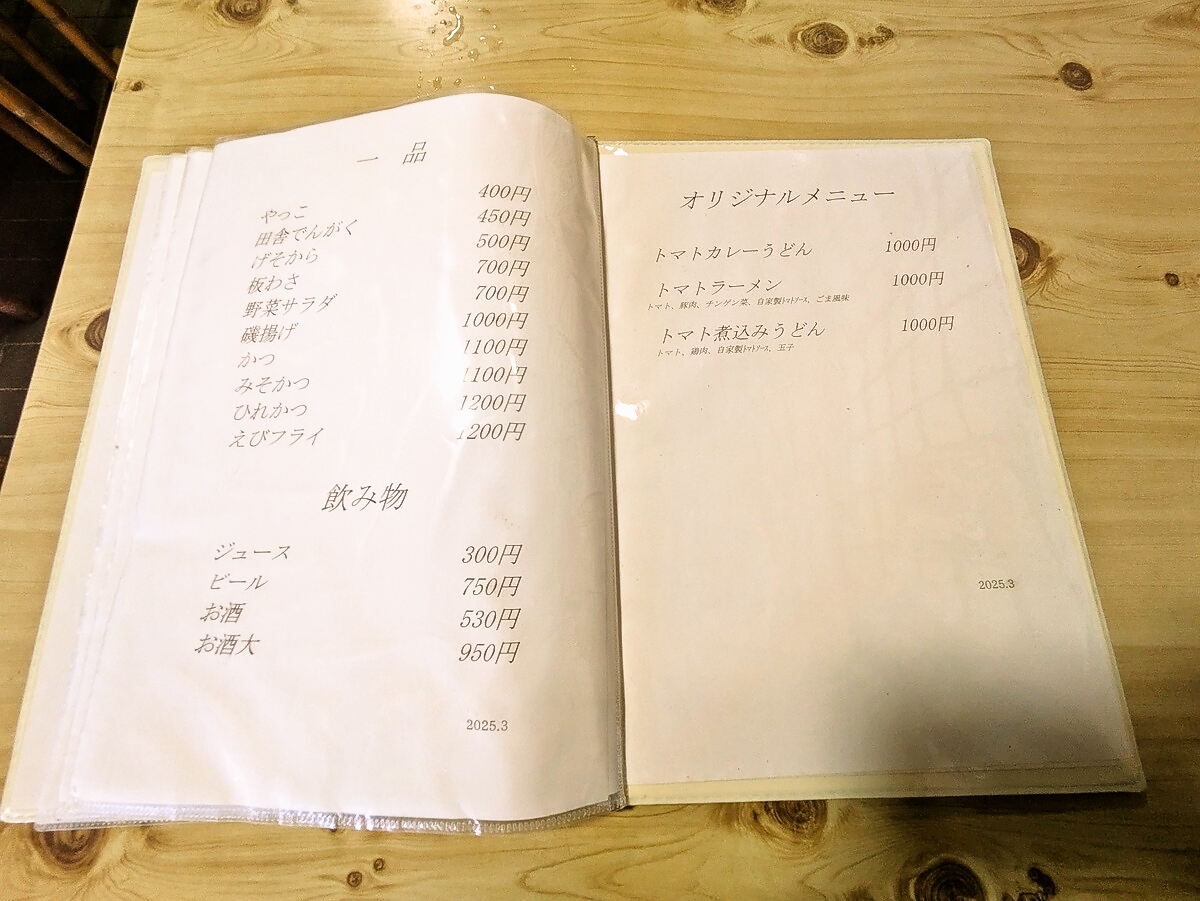 一 品
やっこ 400円
田舎でんがく 450円
げそから 500円
板わさ 700円
野菜サラダ 700円
磯揚げ 1000円
かつ 1100円
みそかつ 1100円
ひれかつ 1200円
えびフライ 1200円
飲み物
ジュース 300円
ビール 750円
お酒 530円
お酒大 950円
2025.3
オリジナルメニュー
トマトカレーうどん 1000円
トマトラーメン 1000円
トマト、豚肉、チンゲン菜、自家製ﾄﾏﾄｿｰｽ、ごま風味
トマト煮込みうどん 1000円
トマト、鶏肉、自家製ﾄﾏﾄｿｰｽ、玉子
2025.3